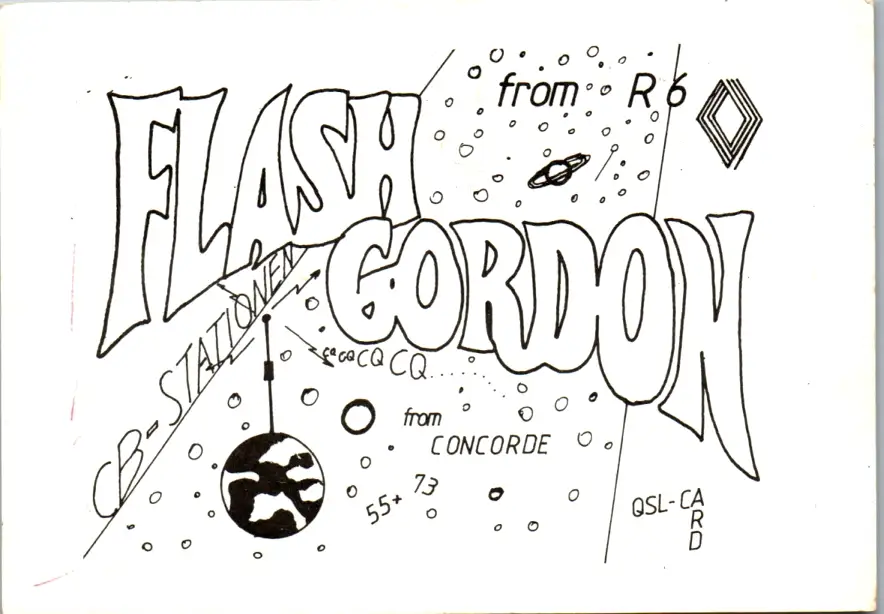 FLASH
from R6
GORDON
CB-STATIONEN
CQ CQ CQ CQ........
from
CONCORDE
55+ 73
QSL-CARD